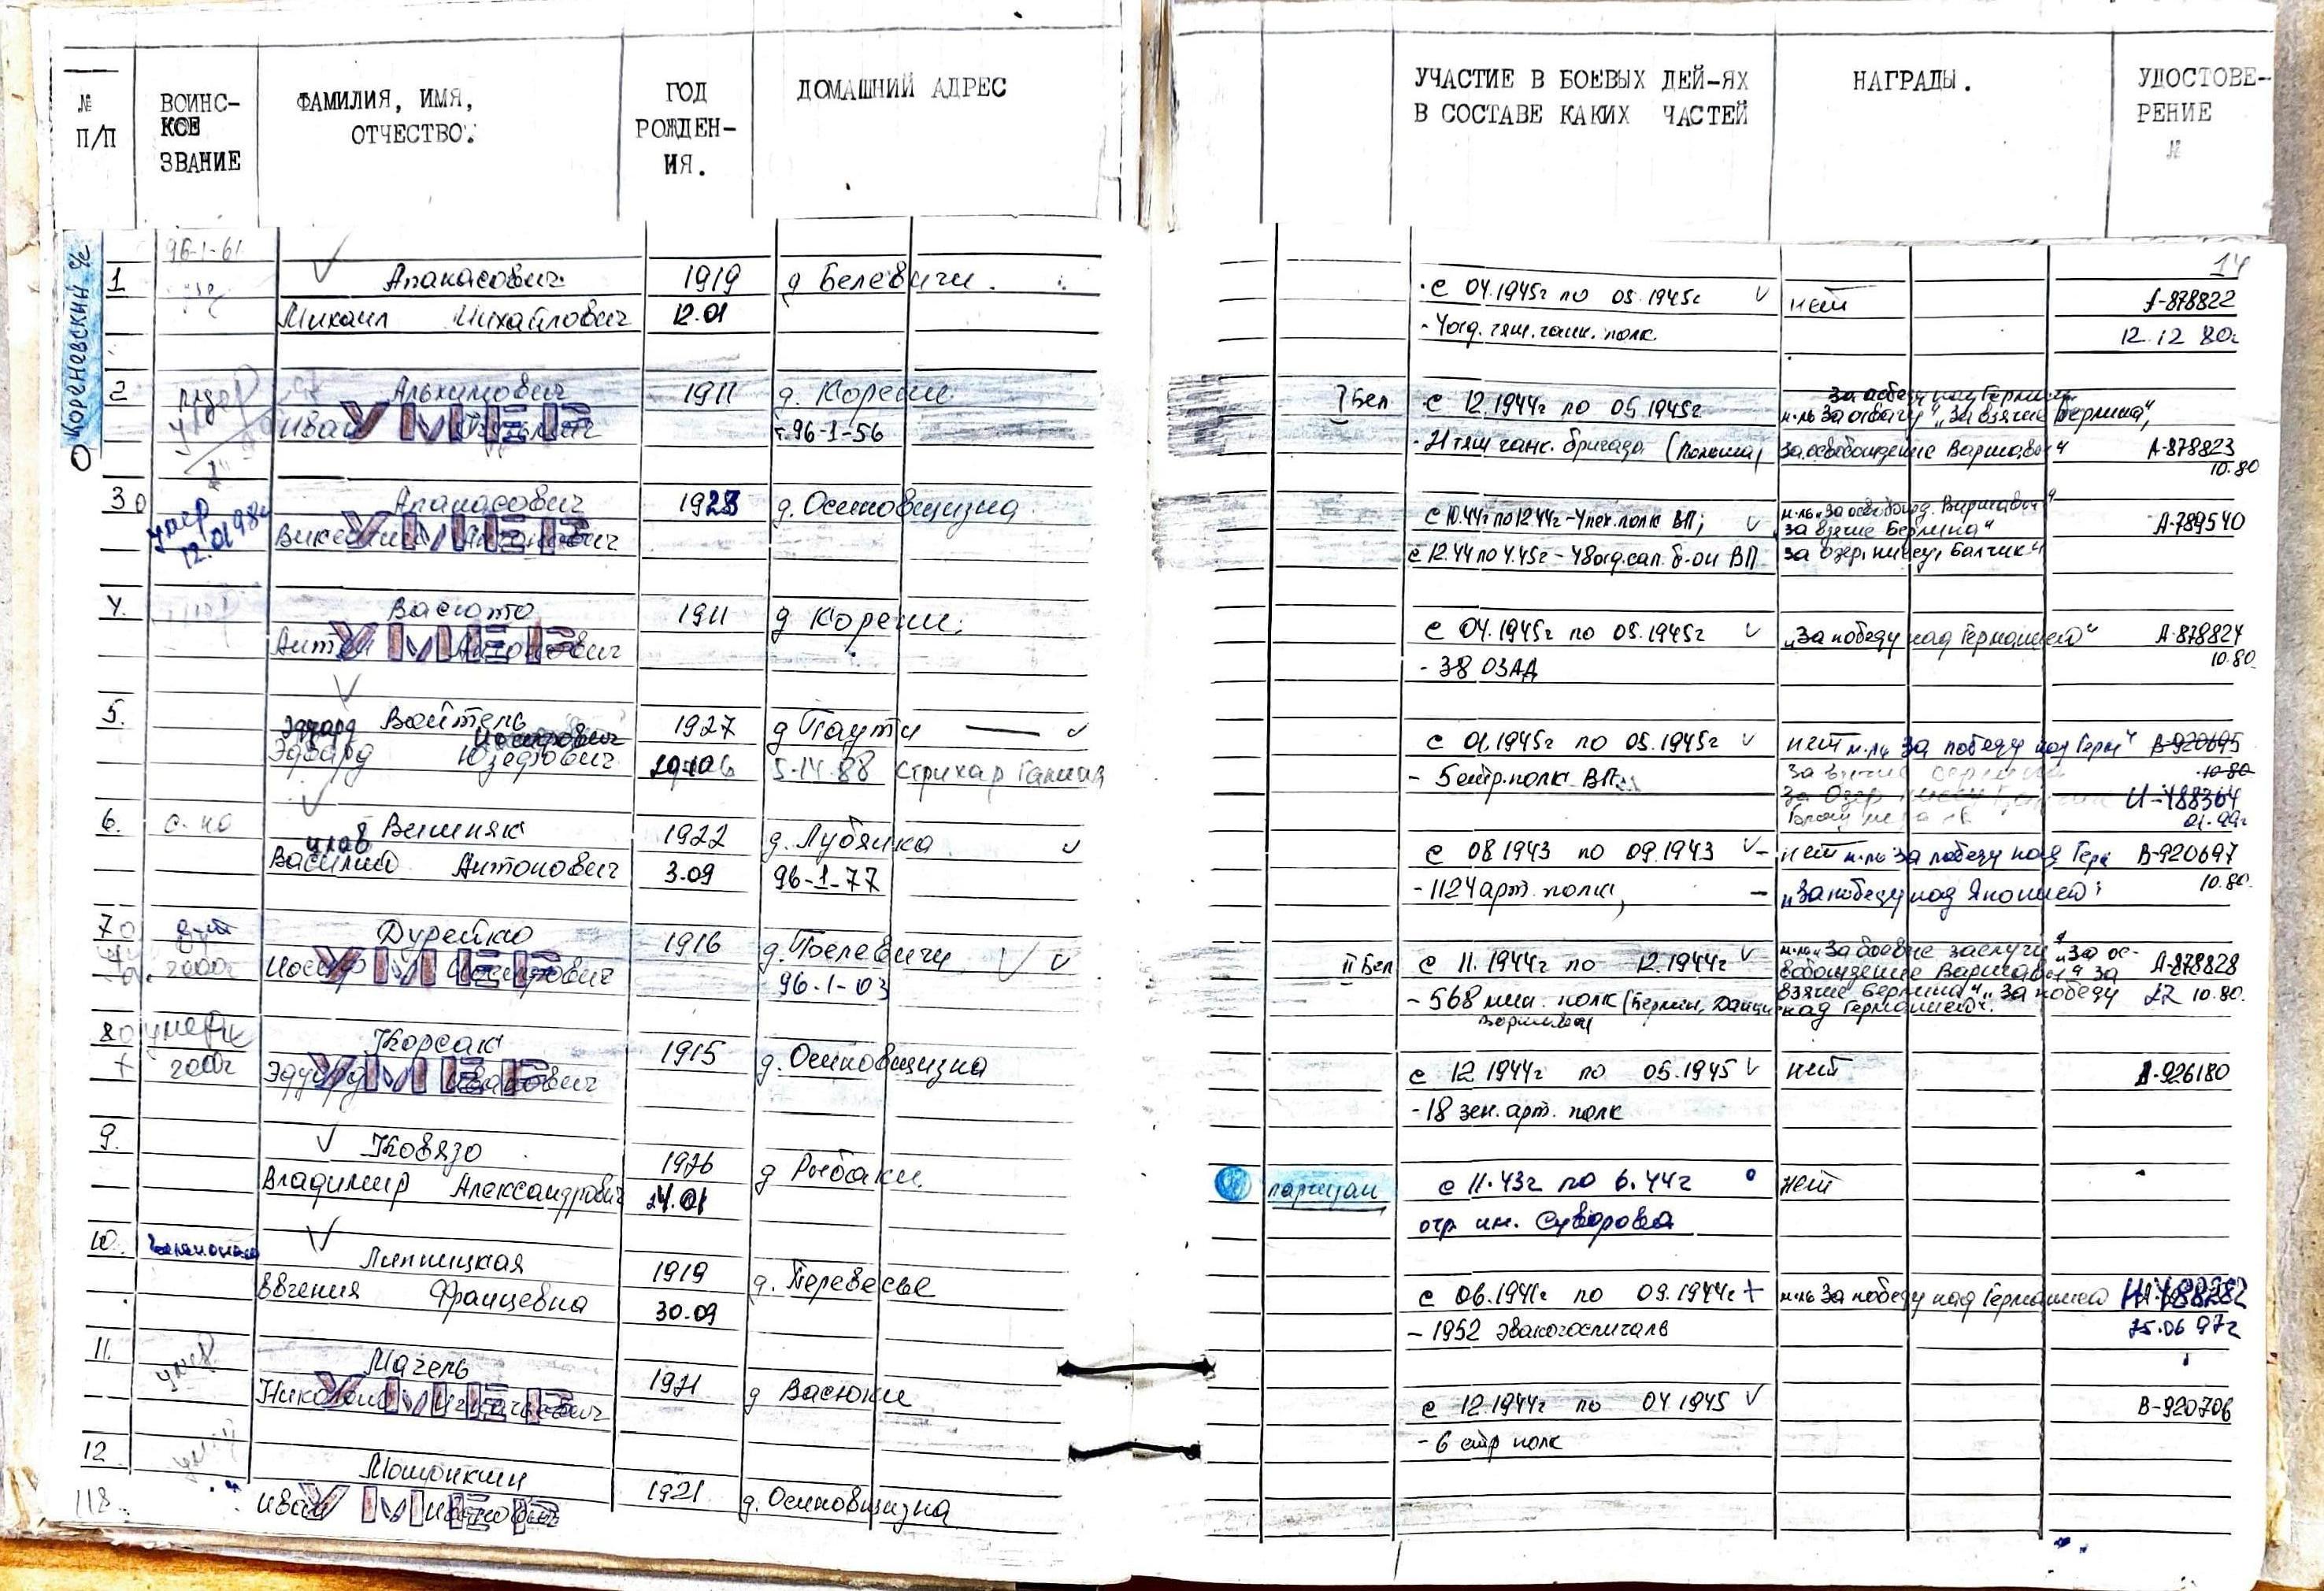 № П/П
ВОИНС-
КОЕ
ЗВАНИЕ
ФАМИЛИЯ, ИМЯ,
ОТЧЕСТВО.
ГОД
РОЖДЕН-
ИЯ.
ДОМАШНИЙ АДРЕС
УЧАСТИЕ В БОЕВЫХ ДЕЙ-ЯХ
В СОСТАВЕ КАКИХ ЧАСТЕЙ
НАГРАДЫ.
УДОСТОВЕ-
РЕНИЕ
№
14
96-1-61
1 Апанасович 1919 д Белевичи. с 04.1945г по 05.1945г нет А-878822
Михаил Михайлович 12.01 12.12 80г
2 Альхимович 1911 д. Корени I Бел с 12.1944г по 05.1945г
За победу над Германией
м-ль За отвагу" „За взятие Берлина",
Иван УМЕР т.96-1-56 танк. бригада (Польша) За освобождение Варшавы" А-878823
10.80
3 Апанасович 1928 д. Осиповщизна с 10.44г по 12.44г - 4 пех. полк ВП;
умер 12.01.98г УМЕР с 12.44 по 4.45г - 48 отд. сап. б-он ВП
м-ль „За освобожд. Варшавы"
За взятие Берлина" А-789540
за Одер, нисеу, Балтик"
4. Васюто 1911 д Корени. с 04.1945г по 05.1945г „За победу над Германией" А-878824
Антон УМЕР Антонович - 38 ОЗАД 10.80.
5. Войтель 1927 д с 01.1945г по 05.1945г нет м-ль За победу над Герм" В-920695
Эдуард Иосифович
Эдвард Юзефович 5-14-88 Стрихар Галина - 5 стр. полк ВП 10 80
За взятие Берлина
И-488364
01.99г
6. Вишняк 1922 д. Лубянка с 08.1943 по 09.1943 нет м-ль За победу над Гер В-920697
Василий Антонович 3.09 96-1-77 - 1124 арт. полк, „За победу над Японией" 10.80.
7 Дурейко 1916 д. Белевичи II Бел с 11.1944г по 12.1944г
2000г Иосиф УМЕР Иосифович 96-1-03 - 568 мин. полк (Берлин,
м-ль „За боевые заслуги" „За ос-
вобождение Варшавы" За А-878828
взятие Берлина" „За победу 22 10.80.
над Германией".
8 умер Корсак 1915 д. Осиповщизна с 12 1944г по 05.1945 нет А-926180
2000г Эдуард УМЕР Иванович - 18 зен. арт. полк
9. Ковязо 1926 д Рыбаки. партизан с 11.43г по 6.44г нет
Владимир Александрович 24.01 отр им. Суворова
10. Липницкая 1919 д. Перевесье с 06.1941г по 09.1944г м-ль За победу над Германией И-488282
Евгения Францевна 30.09 - 1952 эвакогоспиталь 25.06 97г
11. умер Мачель 1921 д Васюки с 12.1944г по 04 1945 В-920706
Николай УМЕР Игнатьевич - 6 стр полк
12 умер 1921 д. Осиповщизна
Иван УМЕР Иванович
118